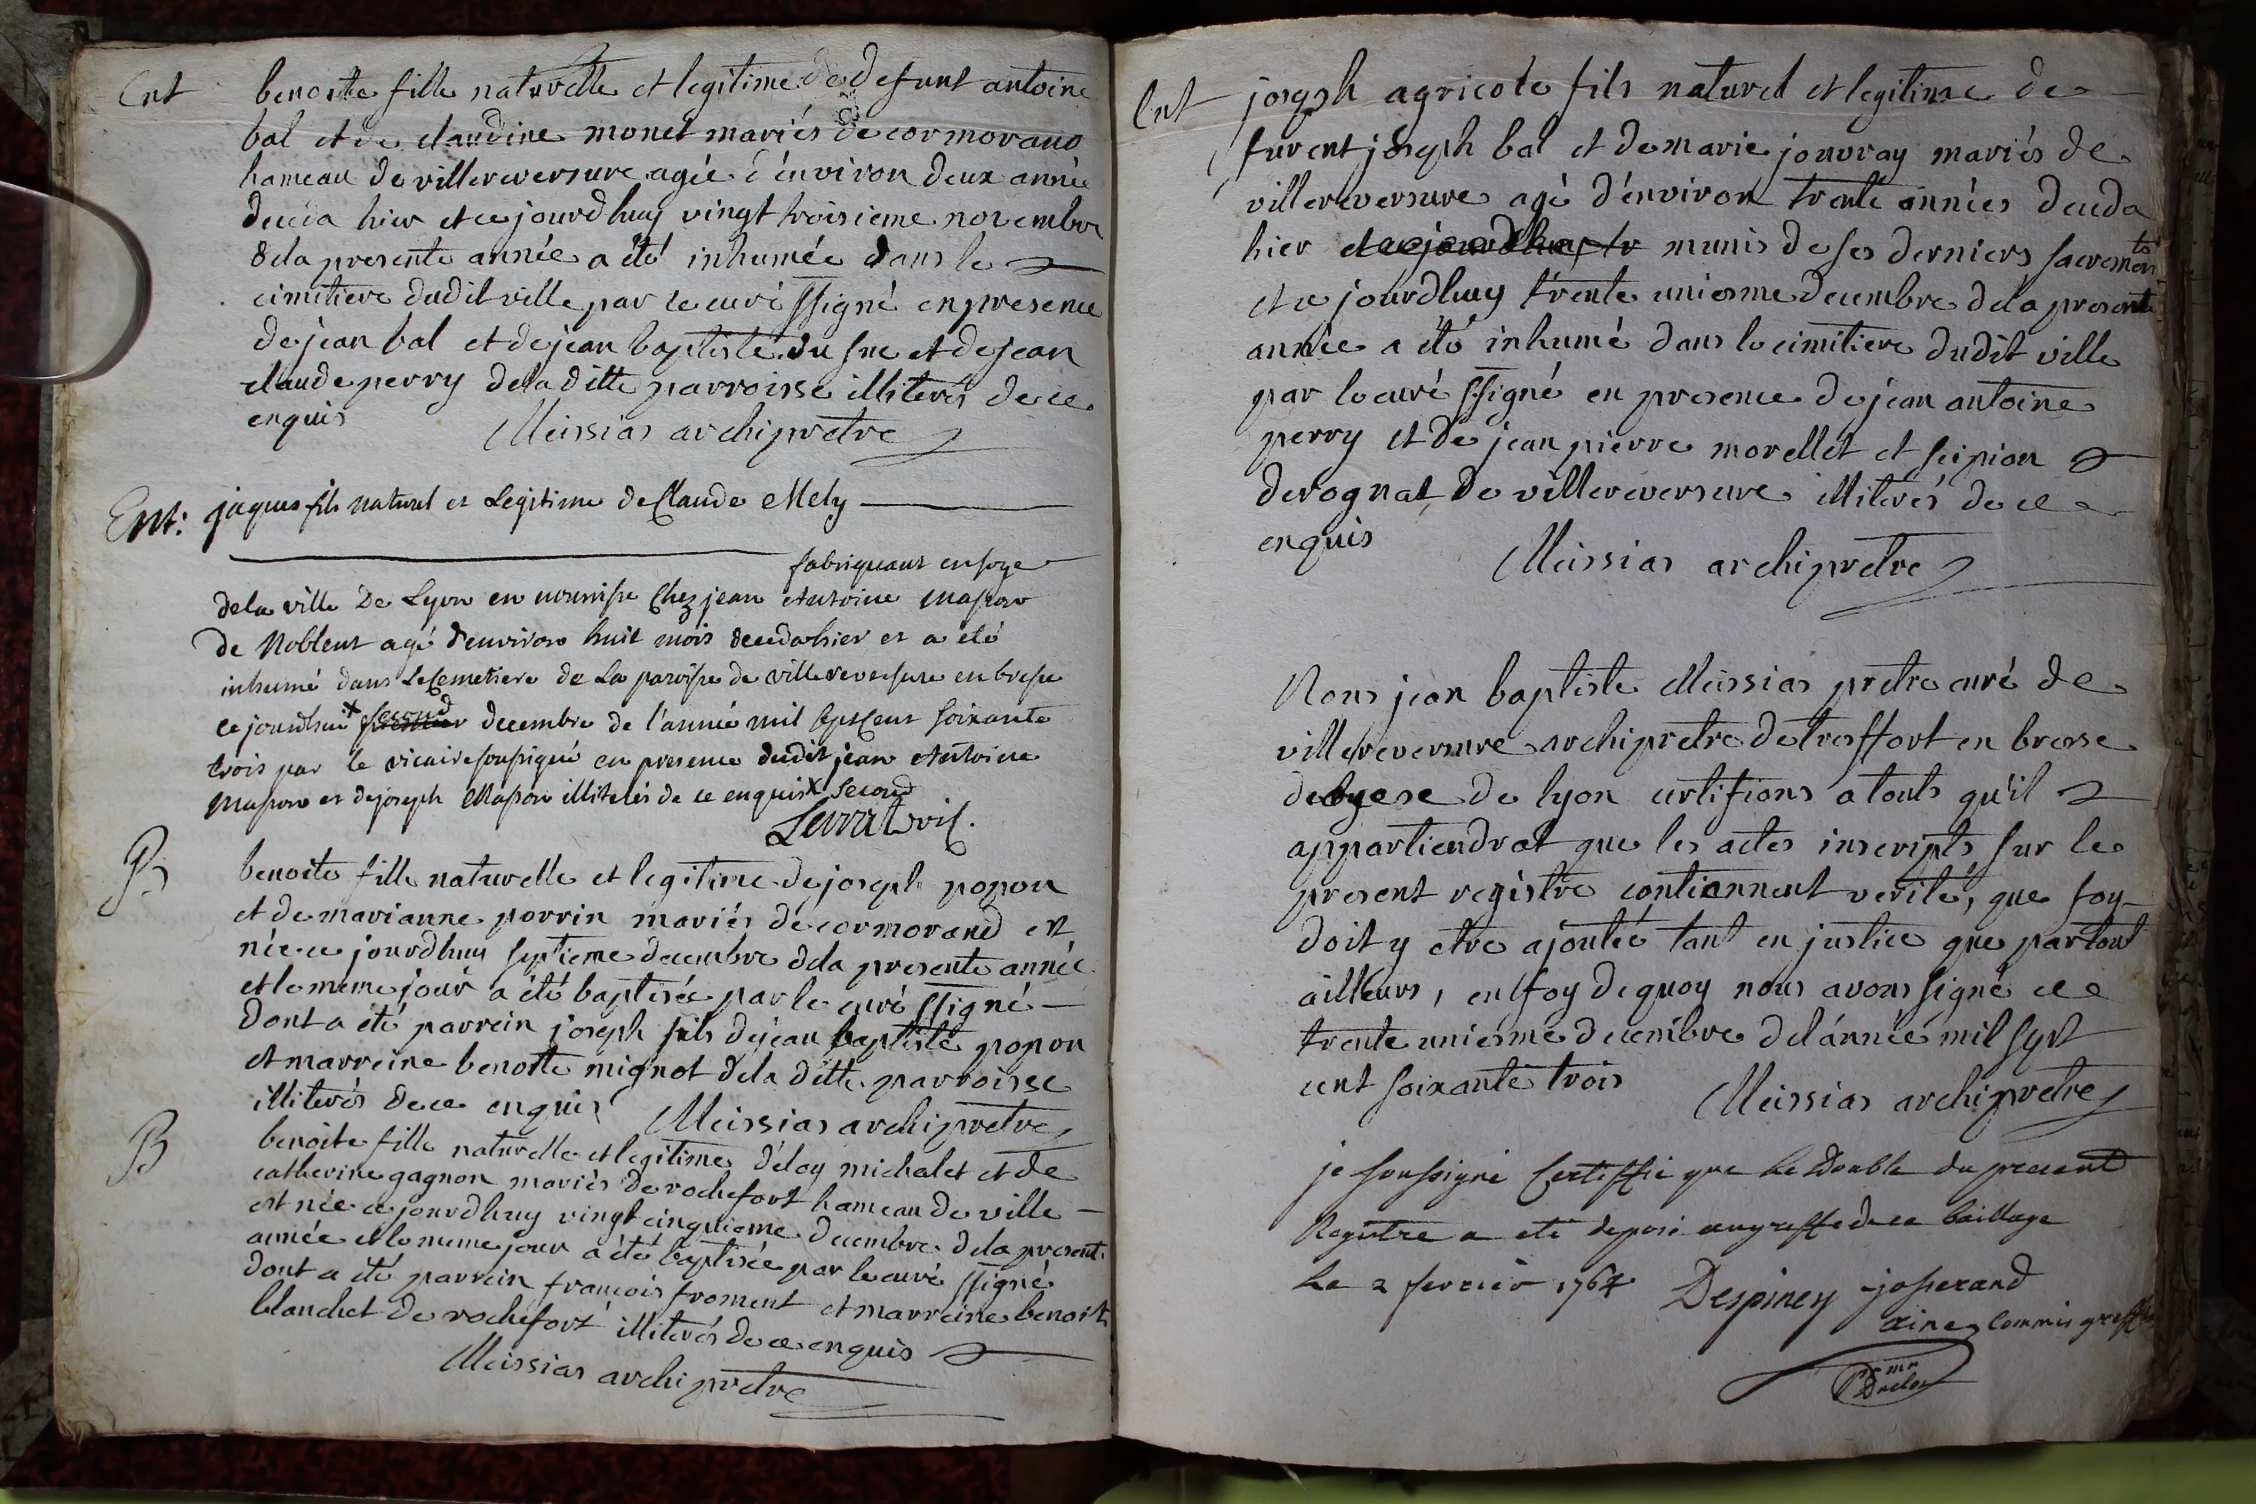 Ent
benoite fille naturelle et legitime de defunt antoine
bal et de claudine monet mariés de cormorand
hameau de villereversure agée d'environ deux année
deceda hier et ce jourdhuy vingt troisieme novembre
dela presente année a été inhumée dans le
cimitiere dudit ville par le curé ssigné en presence
de jean bal et de jean baptiste du fne et de jean
claude perry de la ditte parroisse illiterés de ce
enquis
Meissias archipretre
Ent: jaques fils naturel et Legitime de Claude Mely
fabriquant en soye
de la ville De Lyon en nourrisse Chez jean Antoine Masson
de Noblens agé d'environ huit mois deceda hier et a été
inhumé dans Le Cemetiere de La paroisse de villereversure en bresse
ce jourdhuit x second decembre de l'année mil sept Cent soixante
trois par le vicaire soussigné en presence dudit jean Antoine
Masson et de joseph Masson illiterés de ce enquis x second
vic.
B
benoite fille naturelle et legitime de joseph popon
et de marianne perrin mariés de cormorand est
née ce jourdhuy septieme decembre dela presente année
et le meme jour a été baptisée par le curé ssigné
dont a été parrein joseph fils de jean baptiste popon
et marreine benoite mignot dela ditte parroisse
illiterés de ce enquis
Meissias archipretre
B
benoite fille naturelle et legitime d'éloy michalet et de
catherine gagnon mariés de rochefort hameau de ville
est née ce jourdhuy vingt cinquieme decembre dela present
année et le meme jour a été baptisée par le curé ssigné
dont a été parrein françois froment et marreine benoite
blanchet de rochefort illiterés de ce enquis
Meissias archipretre
Ent
joseph agricole fils naturel et legitime de
furent joseph bal et de marie jouvray mariés de
villereversure agé d'environ trente années deceda
hier et ce jourdhuy munis de ses derniers sacremens
et ce jourdhuy trente uniesme decembre dela presente
année a été inhumé dans le cimitiere dudit ville
par le curé ssigné en presence de jean antoine
perry et de jean pierre morellet et scipion
derognat de villereversure illiterés de ce
enquis
Meissias archipretre
Nous jean baptiste Meissias pretre curé de
villereversure archipretre de treffort en bresse
dioyese de lyon certifions a touts qu'il
appartiendrat que les actes inscripts sur le
present registre contiennent verité, que foy
doit y etre ajoutée tant en justice que partout
ailleurs, en foy de quoy nous avons signé ce
trente uniesme decembre del'année mil sept
cent soixante trois
Meissias archipretre
je soussigné Certiffie que le Double du present
Registre a eté deposé au greffe de ce baillage
Le 2 fevrier 1764 Despiney josserand
ainé commis greff